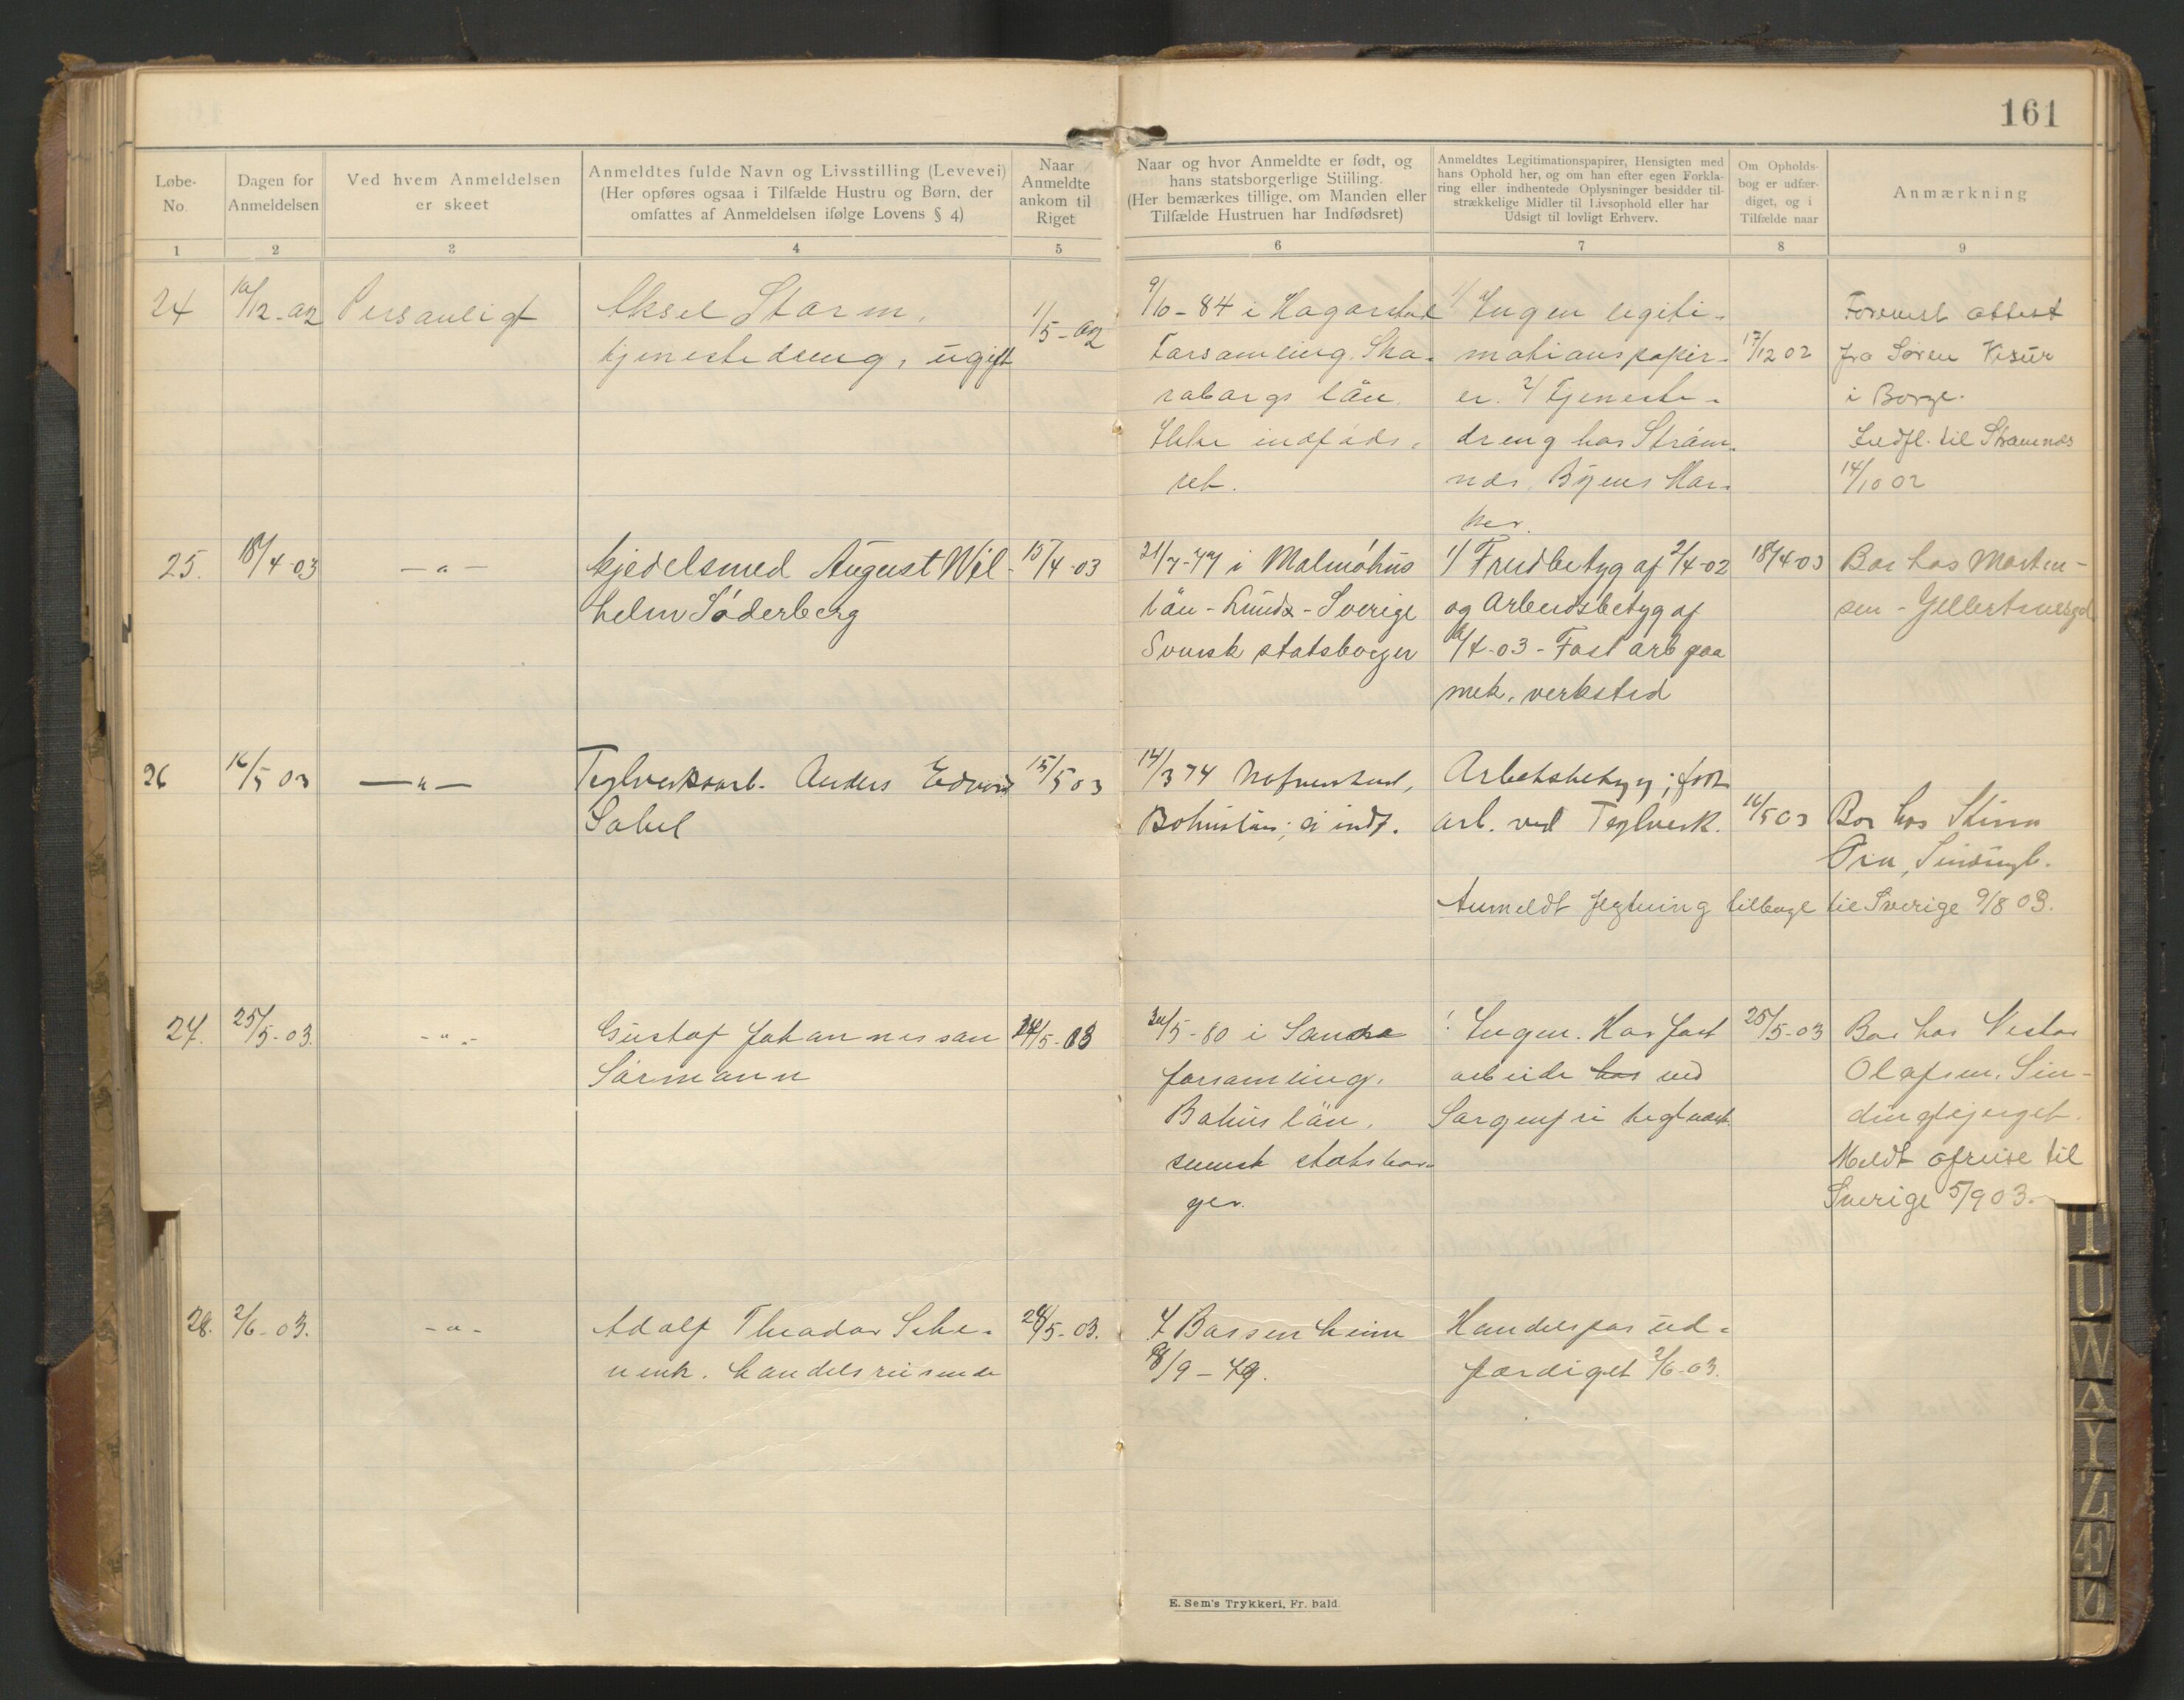 161
Løbe-
No.
Dagen for
Anmeldelsen
Ved hvem Anmeldelsen
er skeet
Anmeldtes fulde Navn og Livsstilling (Levevei)
(Her opføres ogsaa i Tilfælde Hustru og Børn, der
omfattes af Anmeldelsen ifølge Lovens § 4)
Naar
Anmeldte
ankom til
Riget
Naar og hvor Anmeldte er født, og
hans statsborgerlige Stiiling.
(Her bemærkes tillige, om Manden eller
Tilfælde Hustruen har Indfødsret)
Anmeldtes Legitimationspapirer, Hensigten med
hans Ophold her, og om han efter egen Forkla-
ring eller indhentede Oplysninger besidder til-
strækkelige Midler til Livsophold eller har
Udsigt til lovligt Erhverv.
Om Opholds-
bog er udfær-
diget, og i
Tilfælde naar
Anmærkning
1 2 3 4 5 6 7 8 9
24
10/12-02
Personligt
Aksel Storm,
tjenestedreng, ugift
1/5-02
9/10-84 i Hagarstad
Forsamling. Ska-
raborgs län.
Ikke indføds-
ret.
1/ Ingen legiti-
mationspapir-
er. 2/ Tjeneste-
dreng hos Strøm-
nes, Byens Mar-
ker.
17/12 02
Forevist attest
fra Søren
i Borge.
Indfl. til Strømnæs
14/10 02
25.
18/4-03
— " —
Kjedelsmed August Wil-
helm Söderberg
15/4-03
21/7-77 i Malmöhus
län - Lunda - Sverige
Svensk statsborger
1/ Fredbetyg af 2/4-02
og Arbeidsbetyg af
/4-03 - Fast arb paa
mek. verksted
18/4-03
Bor hos Morten-
sen -
26
16/5 03
— " —
Teglverksarb. Anders Edvard
Sabel
15/5 03
14/3 74
Bohuslän; ei indf.
Arbetsbetyg; fast
arb. ved Teglverk.
16/5 03
Bor hos Stina
Anmeldt flytning tilbage til Sverige 9/8 03.
27.
25/5-03.
- " -
Gustaf Johannessan
Sörmann
24/5-03
30/5-80 i
forsamling.
Bohus län.
svensk statsbor-
ger.
! Ingen. Har fast
arbeide hos ved
Sorgenfri teglværk.
25/5-03
Bor hos Nestor
Olafsen. Sin-
dingbjerget.
Meldt afreise til
Sverige 5/9 03.
28.
2/6-03.
- " -
Adolf Theodor Sche-
nenk. handelsreisende
28/5-03.
f Bassenheim
18/9-49.
Handelspas ud-
færdiget 2/6-03.
E. Sem's Trykkeri, Fr. hald.
T
U
W
X
Y
Z
Æ
Ø